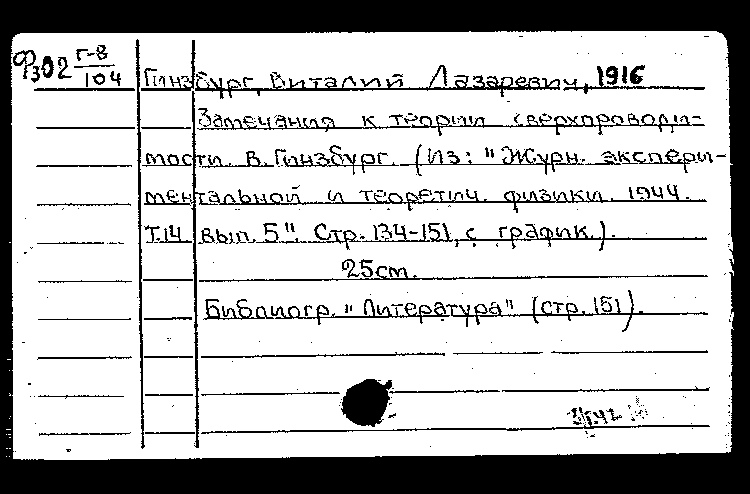 Ф302 Г-8/104
Гинзбург, Виталий Лазаревич, 1916
Замечания к теории сверхпроводи-
мости. В. Гинзбург. (Из: "Журн. экспери-
ментальной и теоретич. физики. 1944.
Т.14 вып. 5". Стр. 134-151, с график.).
25см.
Библиогр. "Литература" (стр. 151).